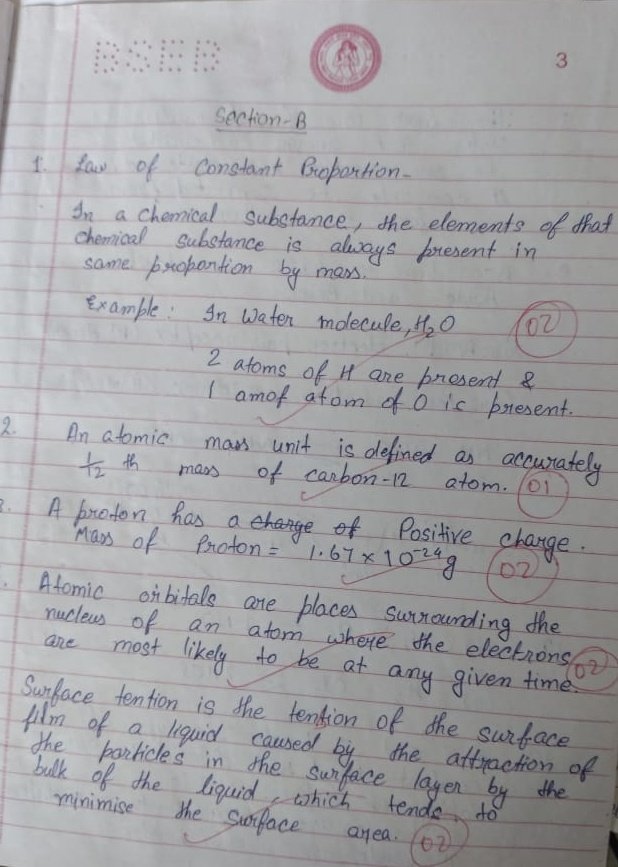 BSEB
3
Section-B
1. Law of Constant Proportion-
In a chemical substance, the elements of that
chemical substance is always present in
same proportion by mass.
Example: In Water molecule, H₂O
02
2 atoms of H are present &
1 amof atom of O is present.
2. An atomic mass unit is defined as accurately
1/12 th mass of carbon-12 atom.
01
3. A proton has a charge of Positive charge.
Mass of Proton = 1.67 × 10⁻²⁴g
02
Atomic orbitals are places surrounding the
nucleus of an atom where the electrons
are most likely to be at any given time.
02
Surface tention is the tention of the surface
film of a liquid caused by the attraction of
the particles in the surface layer by the
bulk of the liquid, which tends to
minimise the surface area.
02